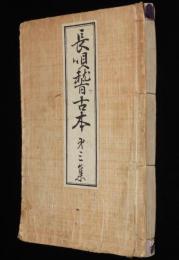 長唄稽古本 第三集